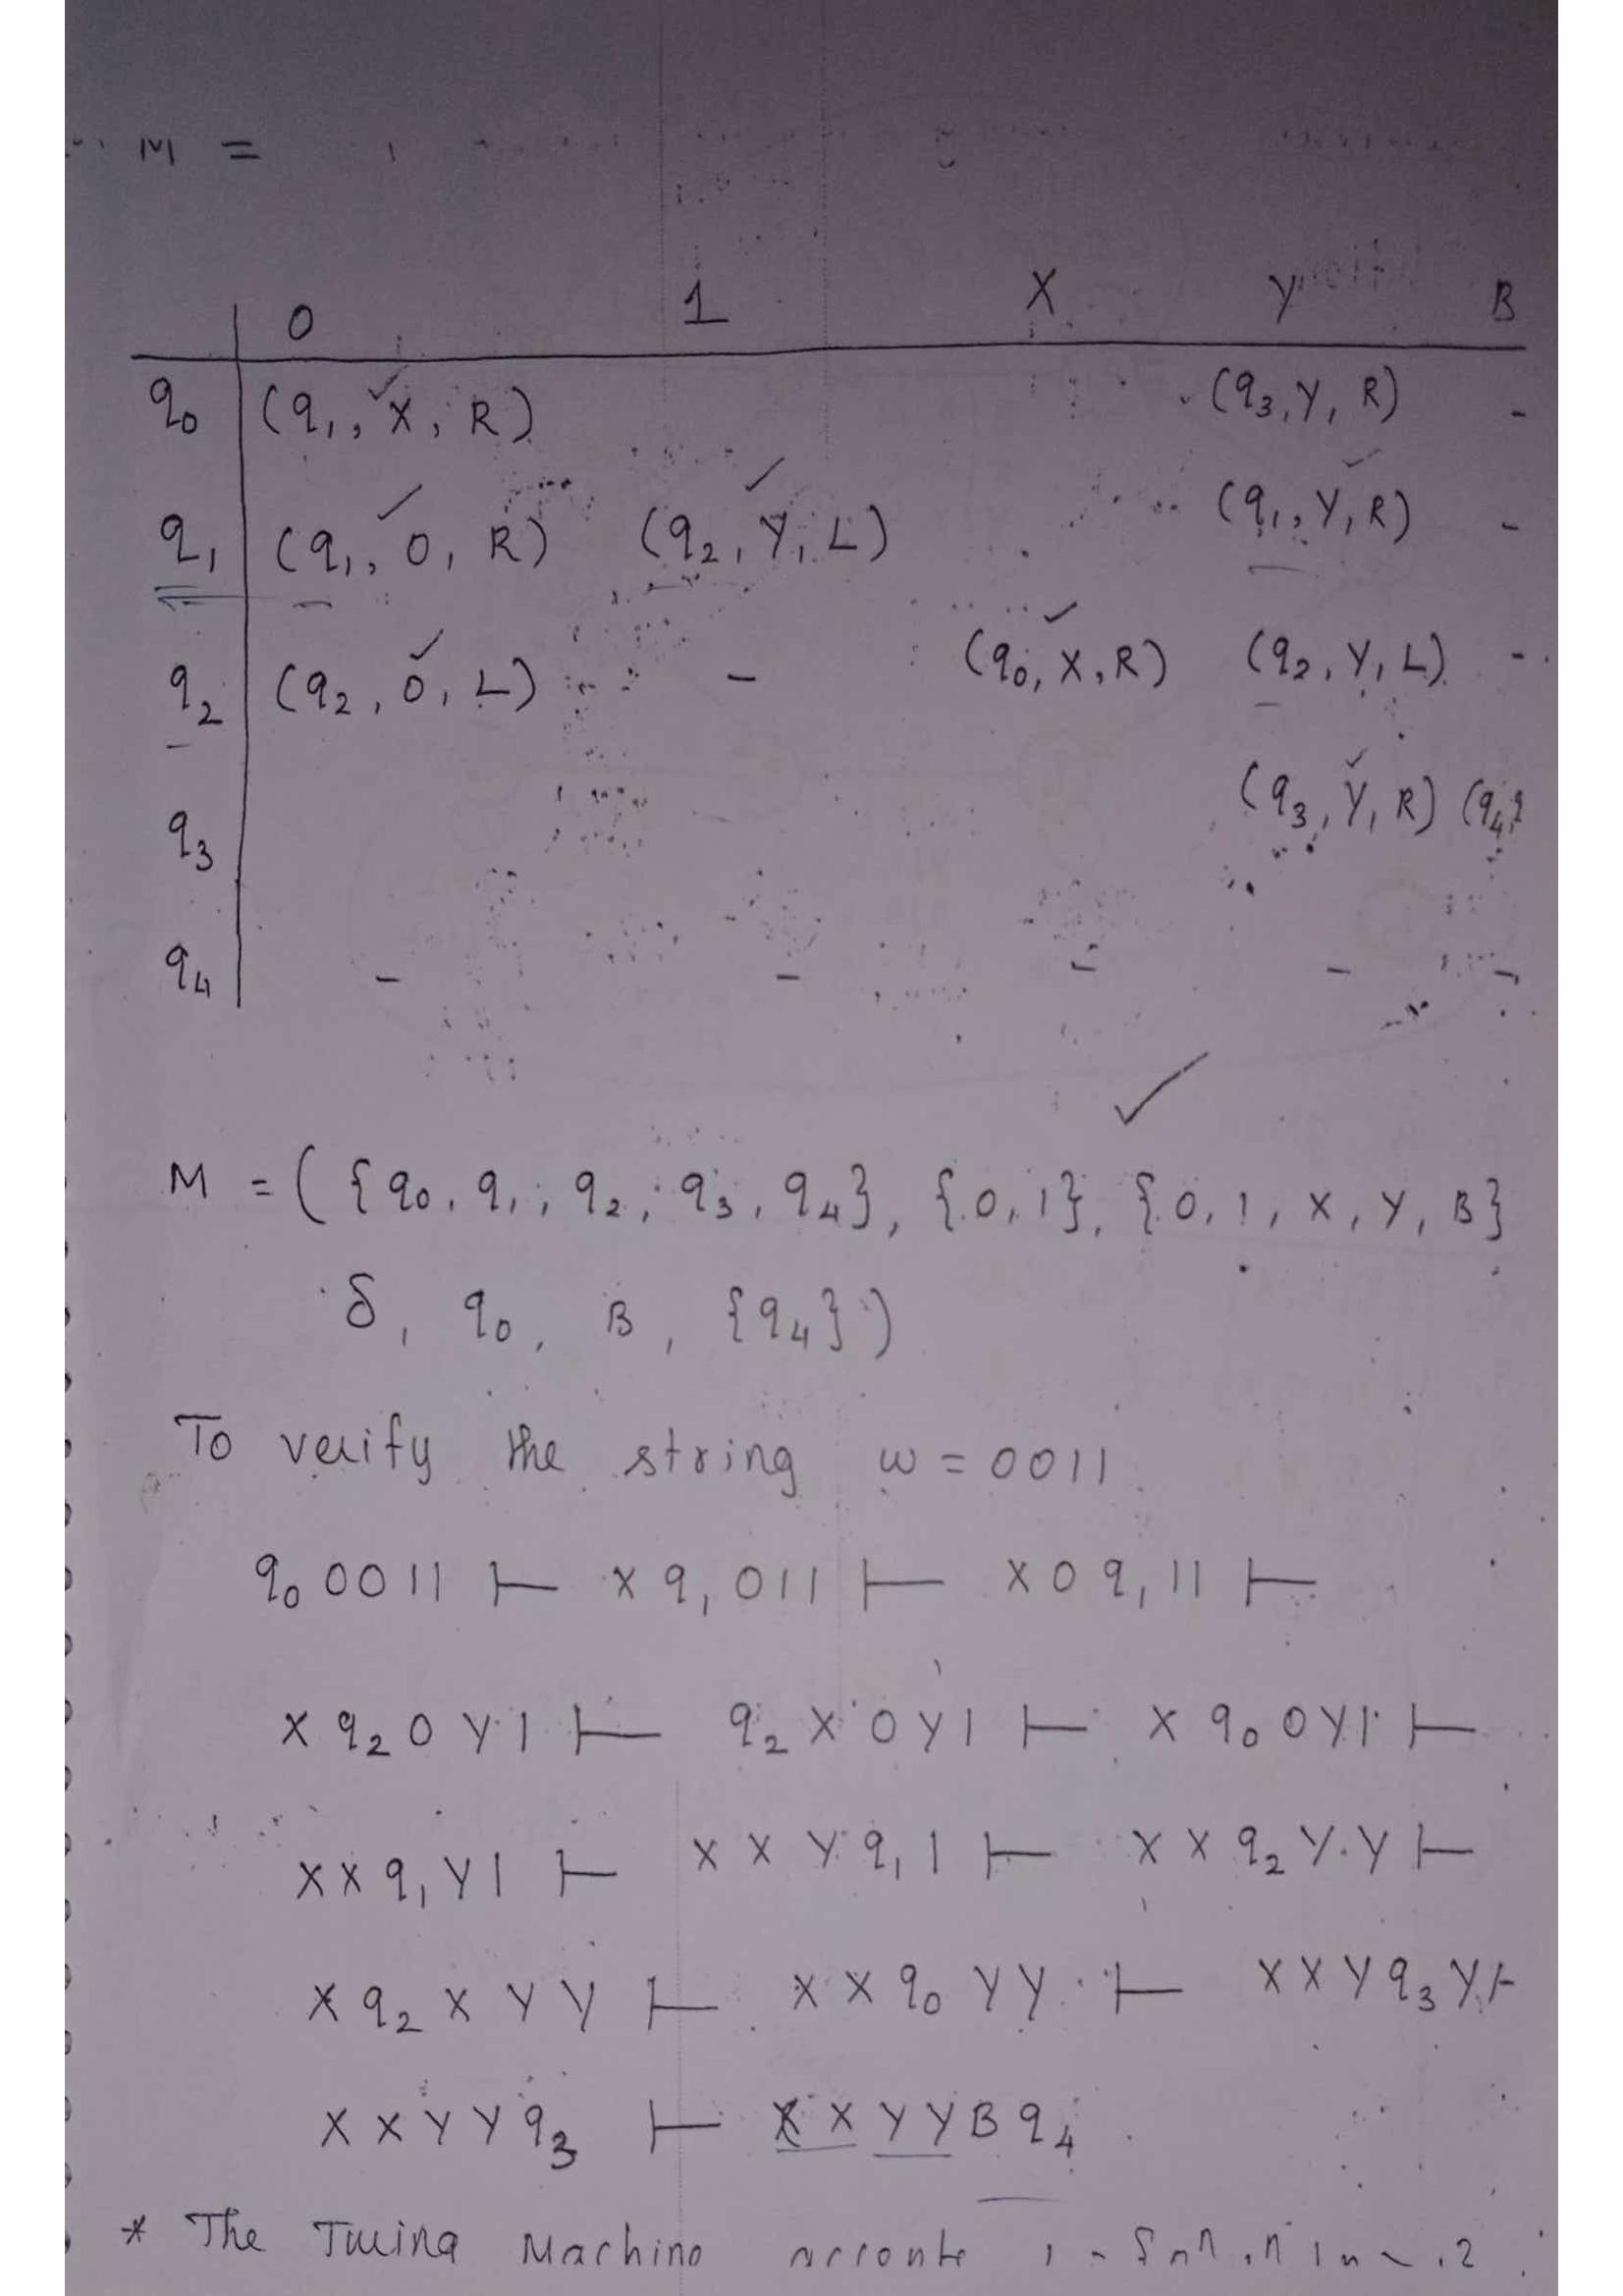 M =
0 1 X Y B
q0 (q1, X, R) (q3, Y, R) -
q1 (q1, 0, R) (q2, Y, L) (q1, Y, R) -
q2 (q2, 0, L) - (q0, X, R) (q2, Y, L) -
q3 (q3, Y, R) (q4,
q4 - - - - -
M = ( {q0, q1, q2, q3, q4}, {0, 1}, {0, 1, X, Y, B}
δ, q0, B, {q4} )
To verify the string w = 0011
q0 0011 ⊢ X q1 011 ⊢ X 0 q1 11 ⊢
X q2 0 Y 1 ⊢ q2 X 0 Y 1 ⊢ X q0 0 Y 1 ⊢
X X q1 Y 1 ⊢ X X Y q1 1 ⊢ X X q2 Y Y ⊢
X q2 X Y Y ⊢ X X q0 Y Y ⊢ X X Y q3 Y ⊢
X X Y Y q3 ⊢ X X Y Y B q4
* The Turing Machine